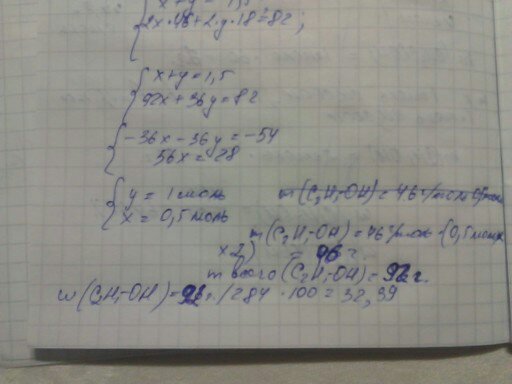 x + y = 1,5
2x·46 + 2·y·18 = 82;
x + y = 1,5
92x + 36y = 82
-36x - 36y = -54
56x = 28
y = 1 моль
x = 0,5 моль
m(C₂H₅OH) = 46 г/моль
m(C₂H₅-OH) = 46 г/моль · (0,5 моль
x 2) =
m всего (C₂H₅-OH) = 92 г.
w(C₂H₅-OH) = 92 г. / 284 · 100 = 32,39